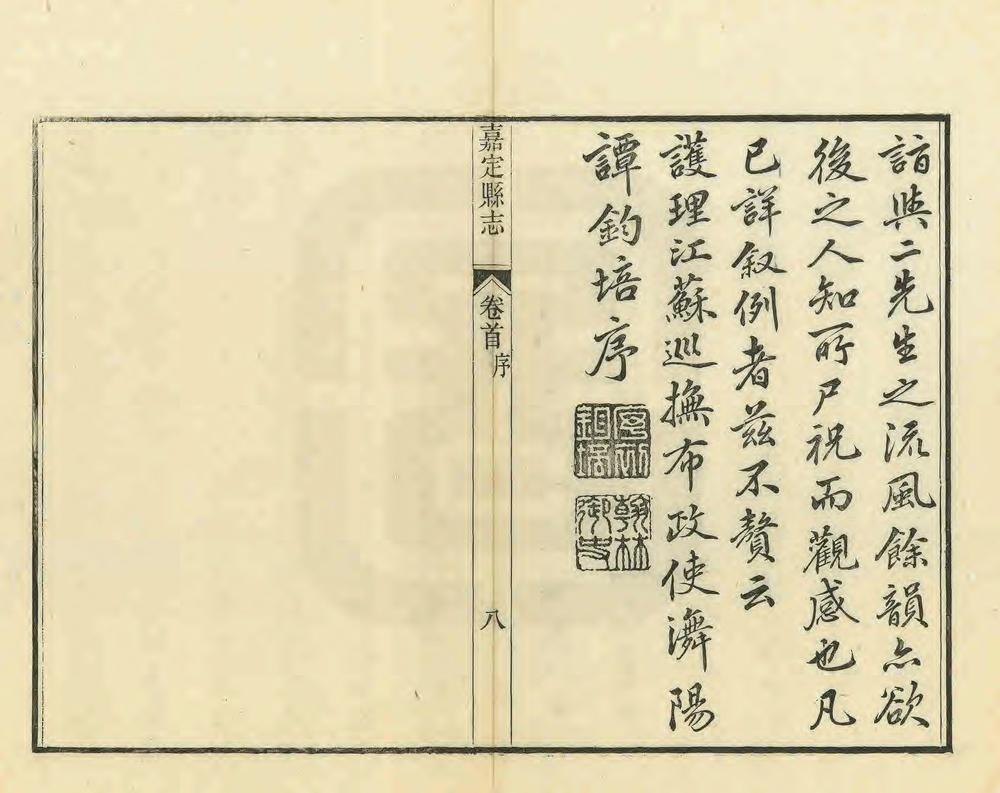 詣與二先生之流風餘韻亦欲
後之人知所尸祝而觀感也凡
已詳叙例者茲不贅云
護理江蘇巡撫布政使㵲陽
譚鈞培序
序初
鈞培
翰林
御史
嘉定縣志
卷首
序
八